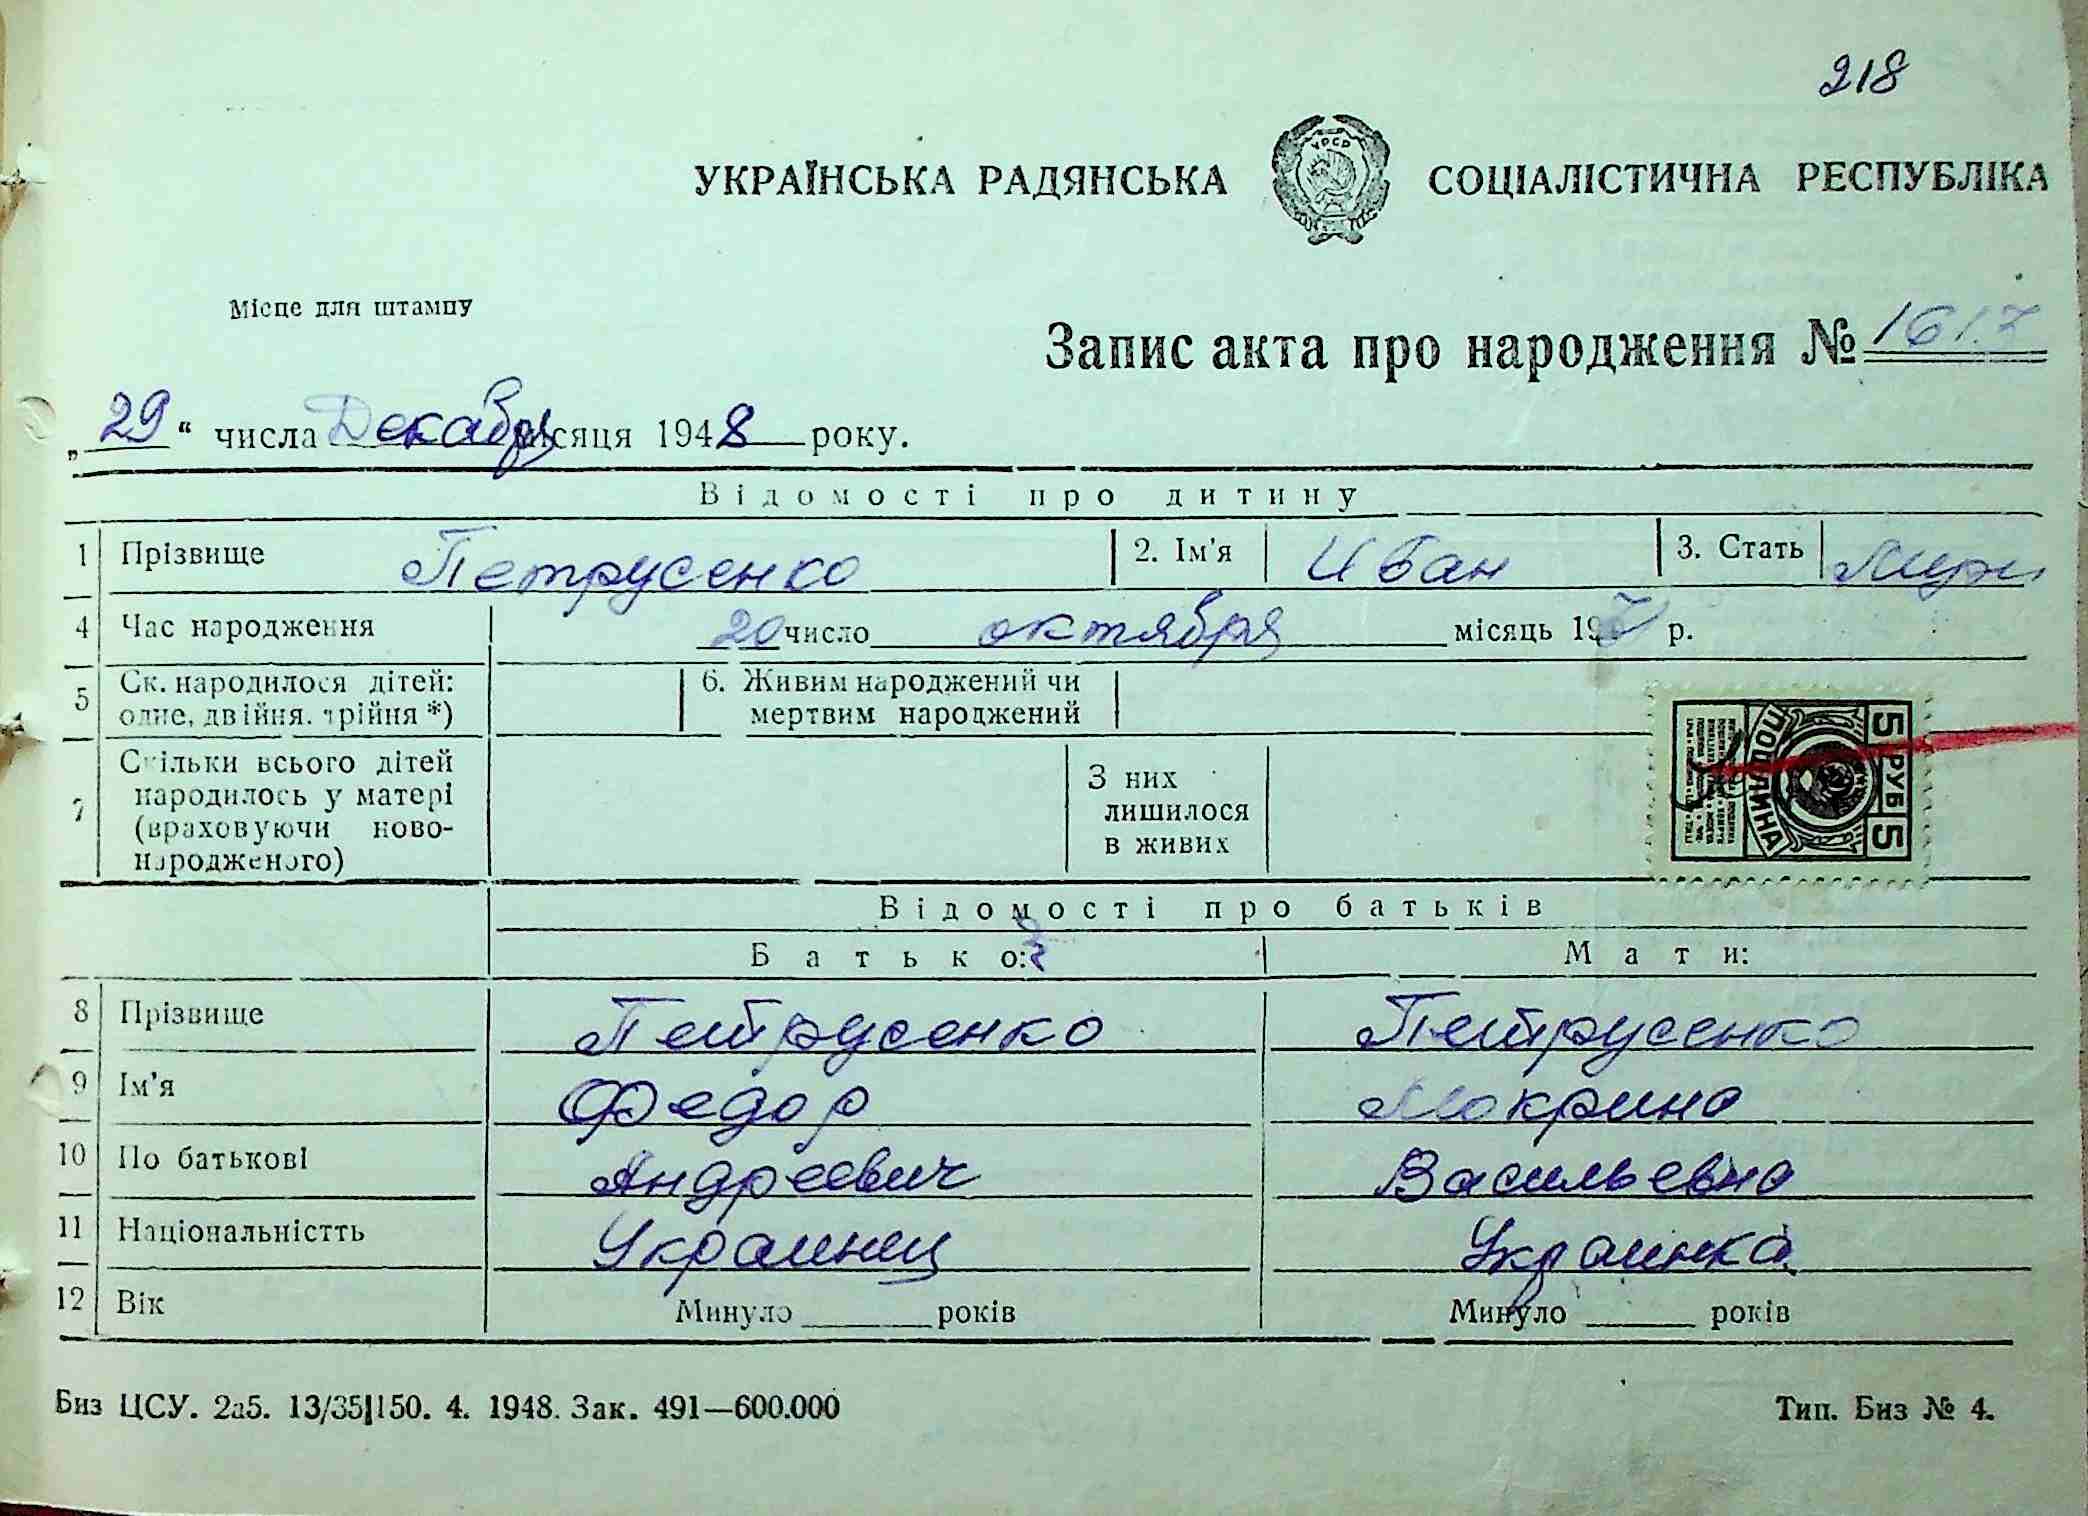 218
УКРАЇНСЬКА РАДЯНСЬКА СОЦІАЛІСТИЧНА РЕСПУБЛІКА
УРСР
Місце для штампу
Запис акта про народження № 1617
„29“ числа Декабря місяця 1948 року.
Відомості про дитину
1 Прізвище Петрусенко 2. Ім'я Иван 3. Стать Муж
4 Час народження 20 число октября місяць 19 р.
5 Ск. народилося дітей: одне, двійня. трійня *) 6. Живим народжений чи мертвим народжений
7 Скільки всього дітей народилось у матері (враховуючи ново-народженого) З них лишилося в живих
5 РУБ 5
ПОШЛИНА
Відомості про батьків
Батько: Мати:
8 Прізвище Петрусенко Петрусенко
9 Ім'я Федор Мокрина
10 По батькові Андреевич Васильевна
11 Національністть Украинец Украинка
12 Вік Минуло ____ років Минуло ____ років
Биз ЦСУ. 2а5. 13/35|150. 4. 1948. Зак. 491—600.000 Тип. Биз № 4.